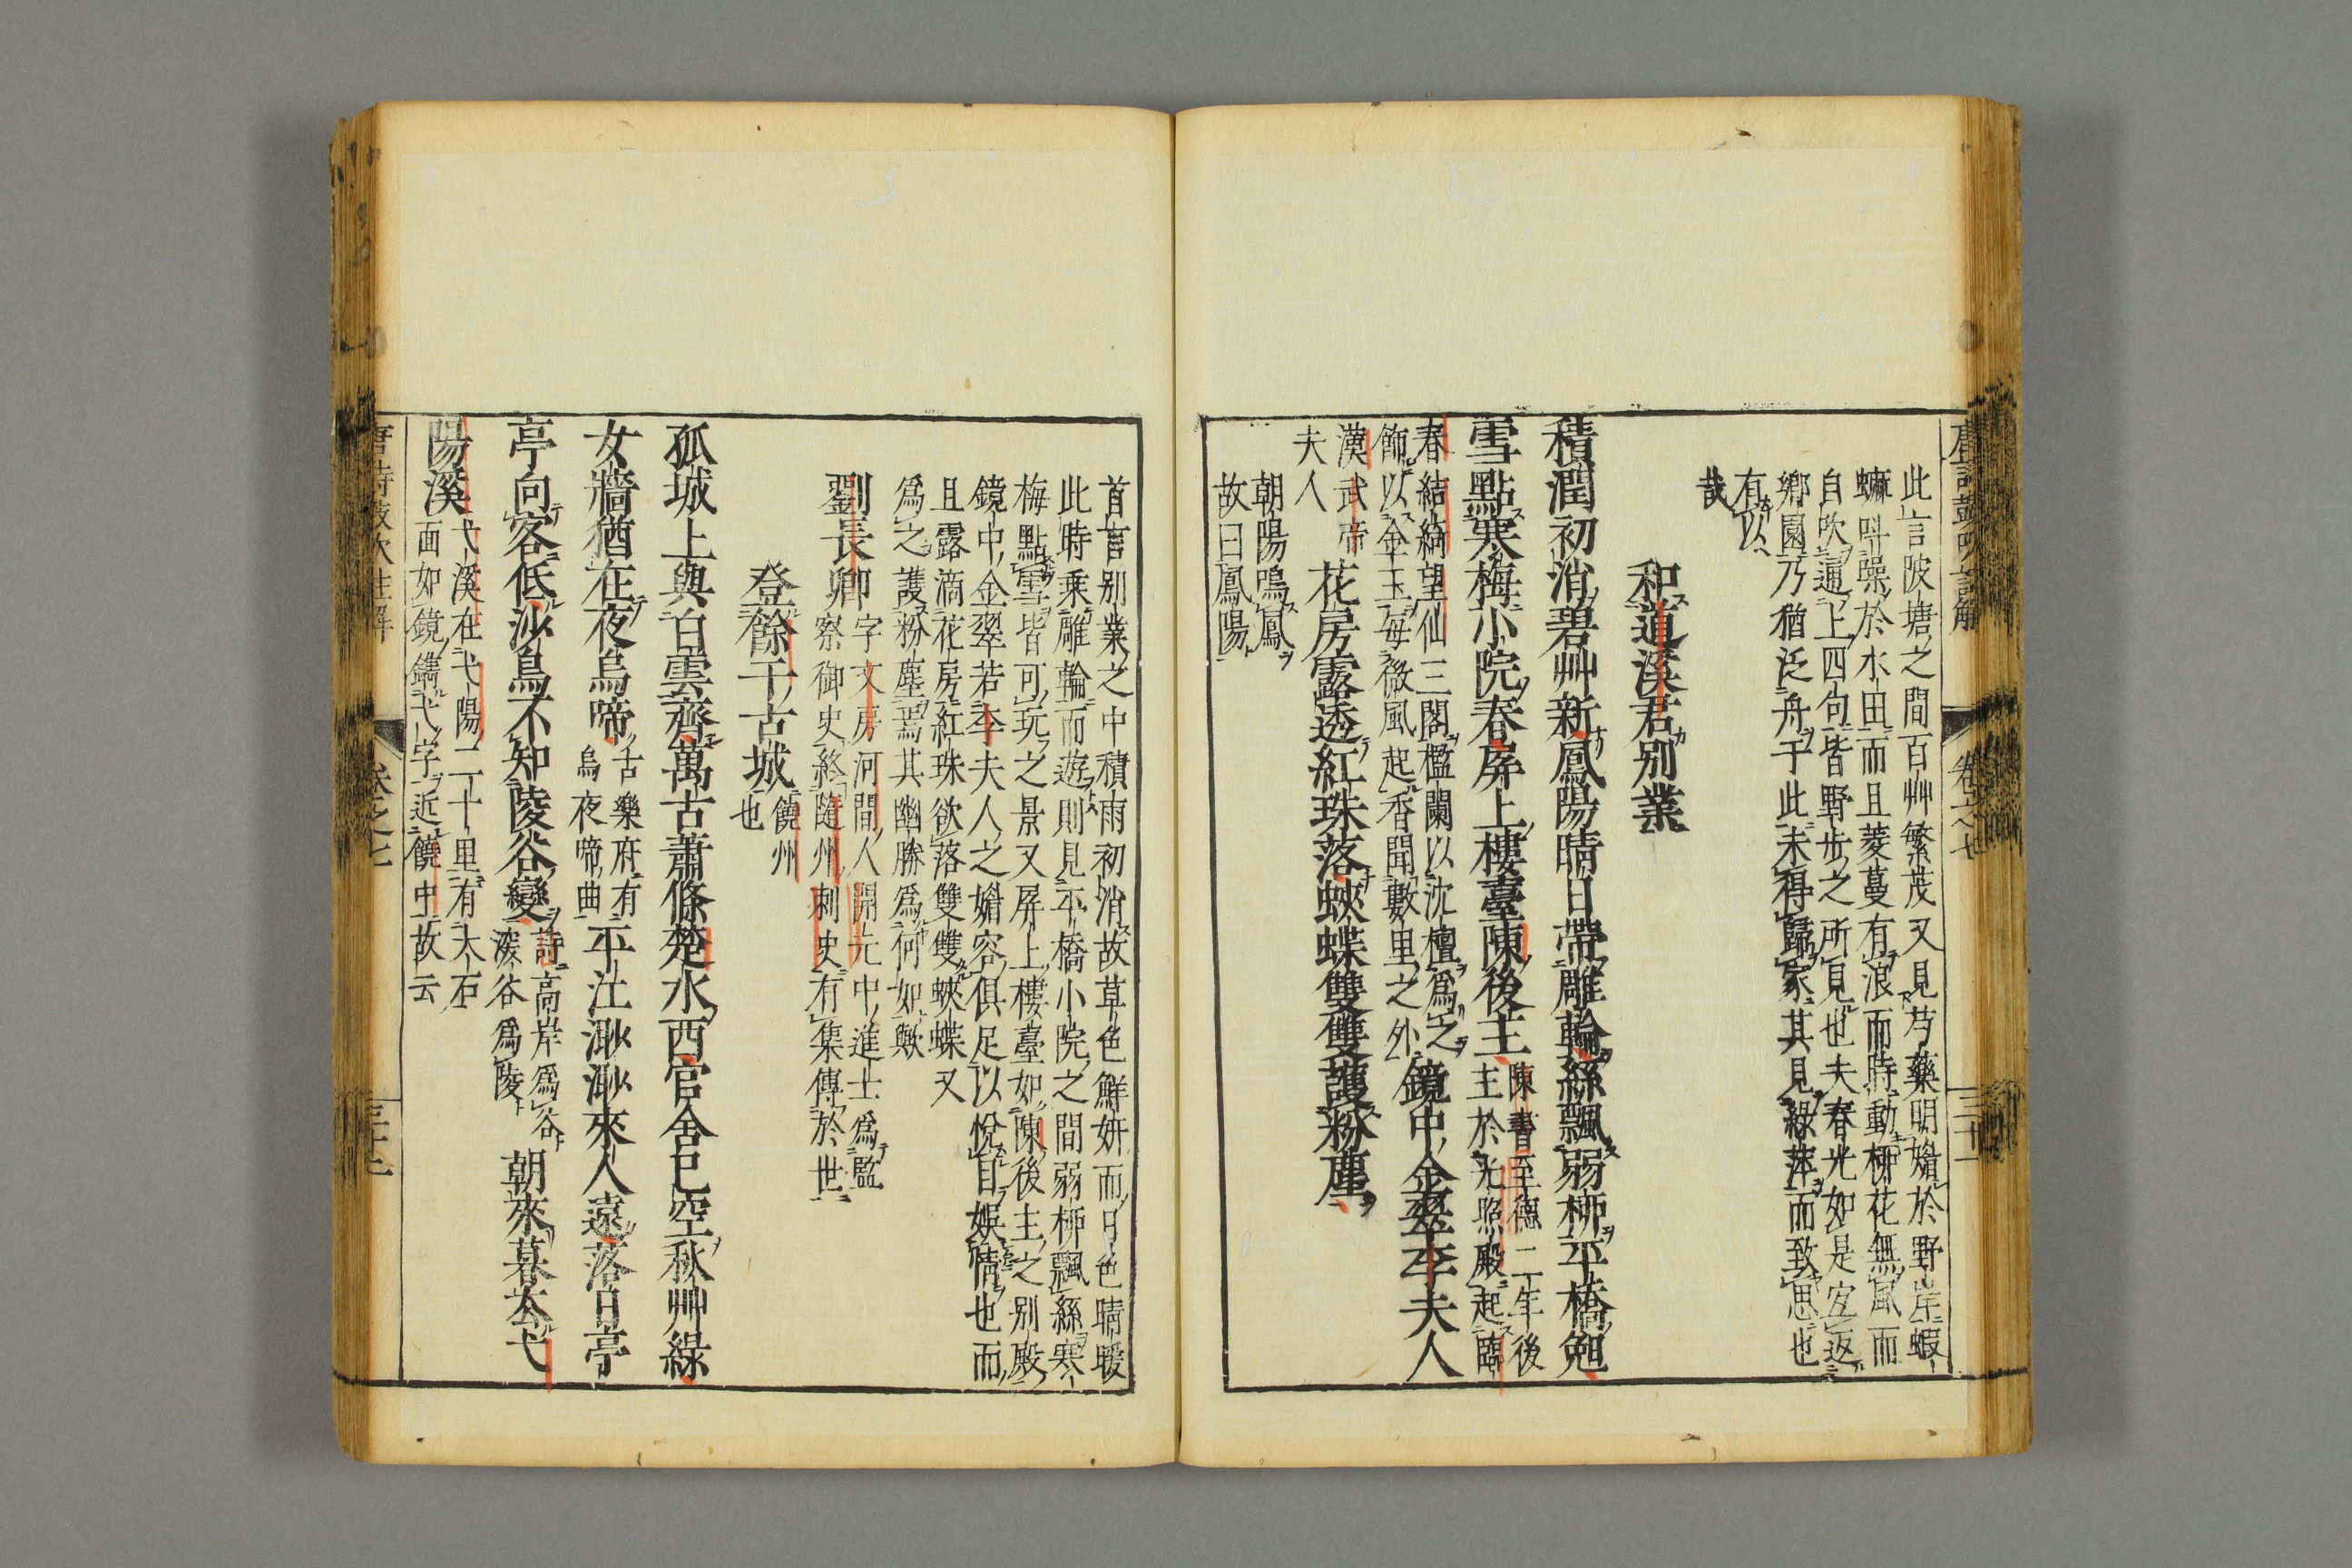 此言陂塘之間百艸繁茂又見芍藥明媚於野岸蝦
蟆呌譟於水田而且菱蔓有浪而時動柳花無風而
自吹逼上四句皆野歩之所見也夫春光如是宜返
鄉園乃猶泛舟于此未得歸家其見綠萍而致思也
有以
哉
和道溪君别業
積潤初消碧艸新鳳陽晴日帶雕輪絲飄弱栁平橋勉
雪點寒梅小院春屏上樓臺陳後主
陳書至德二年後
主於光照殿起臨
春結綺望仙三閣檻闌以沈檀爲之
飾以金玉每微風起香聞數里之外
鏡中金翠李夫人
漢武帝
夫人
花房露透紅珠落蛺蝶雙雙護粉塵
朝陽鳴鳳
故曰鳳陽
首言别業之中積雨初消故草色鮮妍而日色晴暖
此時乗雕輪而遊則見平橋小院之間弱栁飄絲寒
梅點雪皆可玩之景又屏上樓臺如陳後主之别殿
鏡中金翠若李夫人之媚容俱足以悅目娯情也而
且露滴花房紅珠欲落雙雙蛺蝶又
爲之護粉塵焉其幽勝爲何如歟
劉長卿
字文房河間人開元中進士爲監
察御史終隨州刺史有集傳於世
登餘干古城
饒州
也
孤城上與白雲齊萬古蕭條楚水西官舍已空秋艸綠
女牆猶在夜烏啼
古樂府有
烏夜啼曲
平江渺渺來人遠落日亭
亭向客低沙鳥不知陵谷變
詩高岸爲谷
深谷爲陵
朝來暮去弋
陽溪
弋溪在弋陽二十里有大石
面如鏡鐫弋字近饒中故云
卷之七